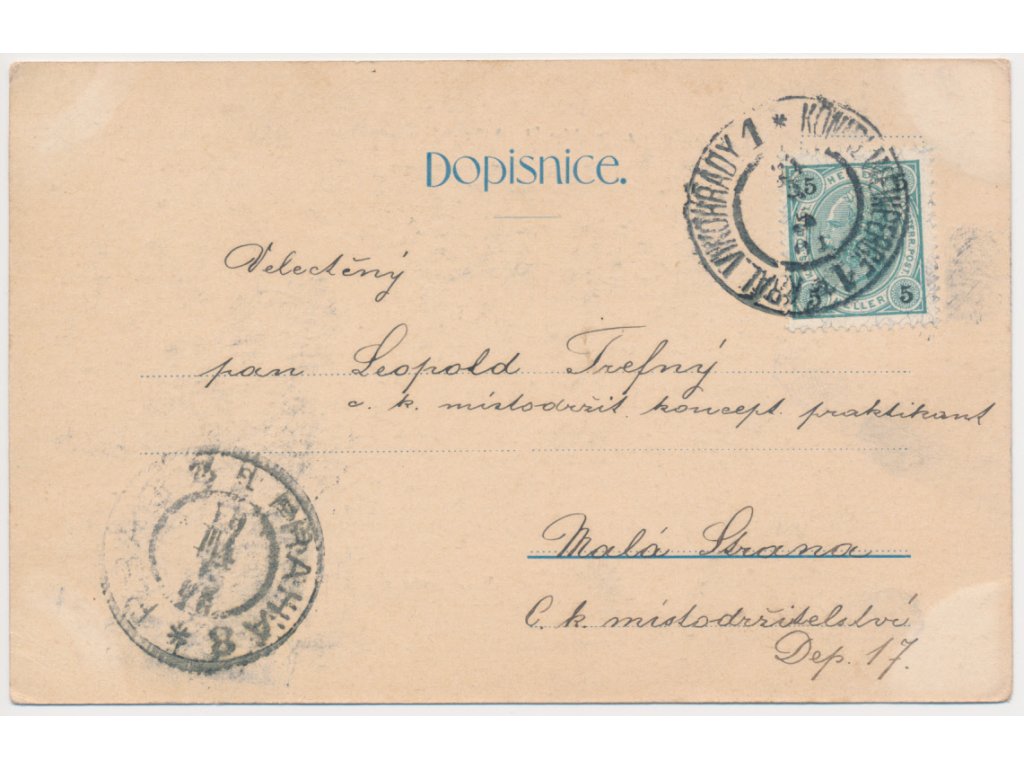 Dopisnice.
KÖNIGL. WEINBERGE 1 * KRÁL. VINOHRADY 1 *
5 HELLER 5
Velectěný
pan Leopold Trefný
c. k. místodržit. koncept. praktikant
PRAHA 8 *
Malá Strana
C. k. místodržitelství
Dep. 17.